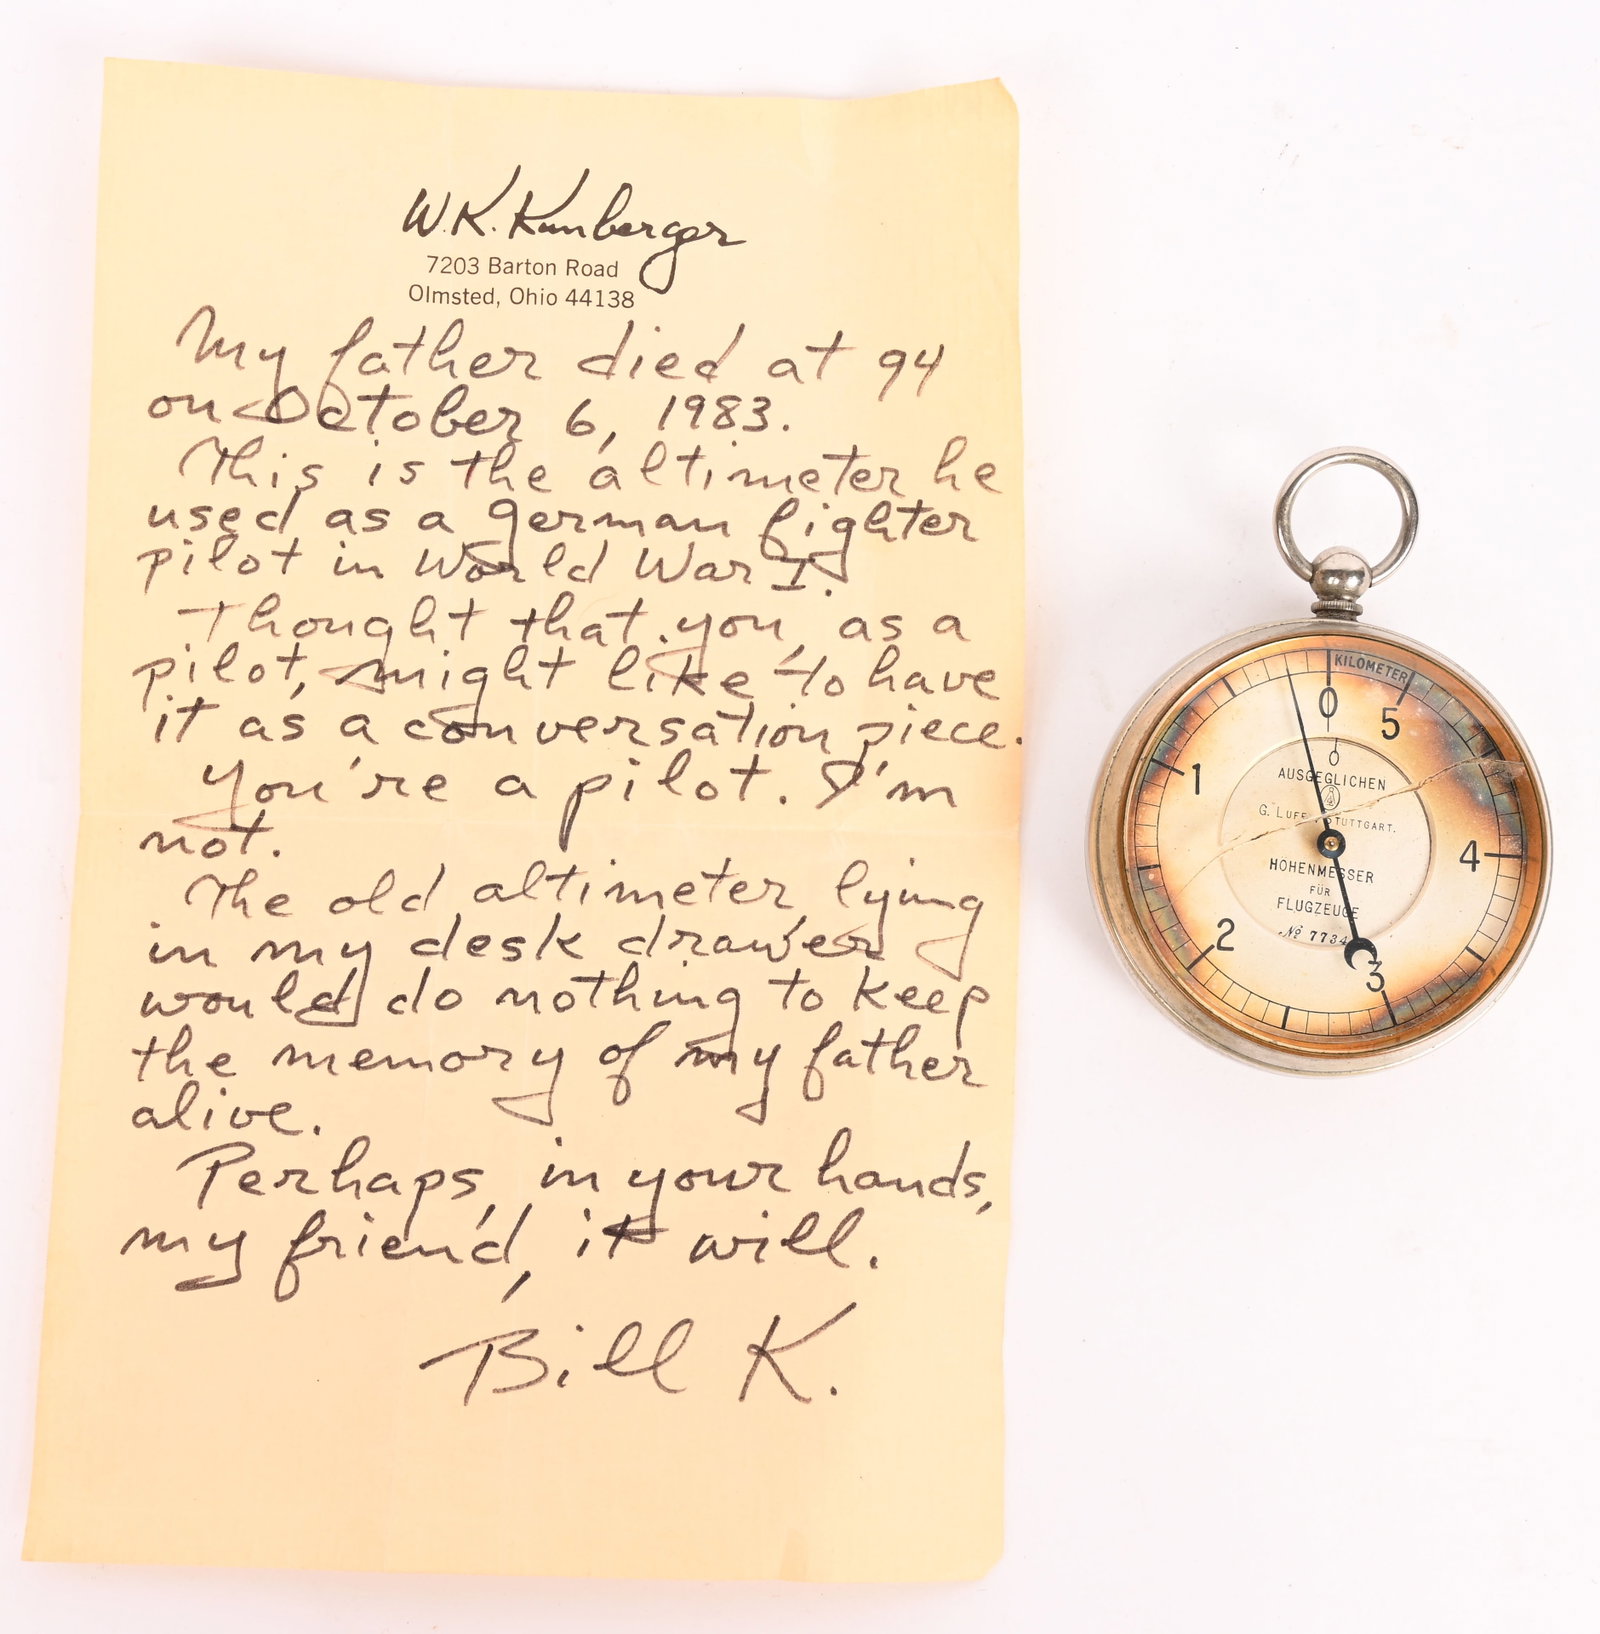 W.K. Kunberger
7203 Barton Road
Olmsted, Ohio 44138
My father died at 94
on October 6, 1983.
This is the altimeter he
used as a German fighter
pilot in World War I.
Thought that you, as a
pilot, might like to have
it as a conversation piece.
You're a pilot. I'm
not.
The old altimeter lying
in my desk drawer
would do nothing to keep
the memory of my father
alive.
Perhaps, in your hands,
my friend, it will.
Bill K.
KILOMETER
0
5
1
4
2
3
AUSGEGLICHEN
G. LUFFT STUTTGART.
HÖHENMESSER
FÜR
FLUGZEUGE
№ 7734